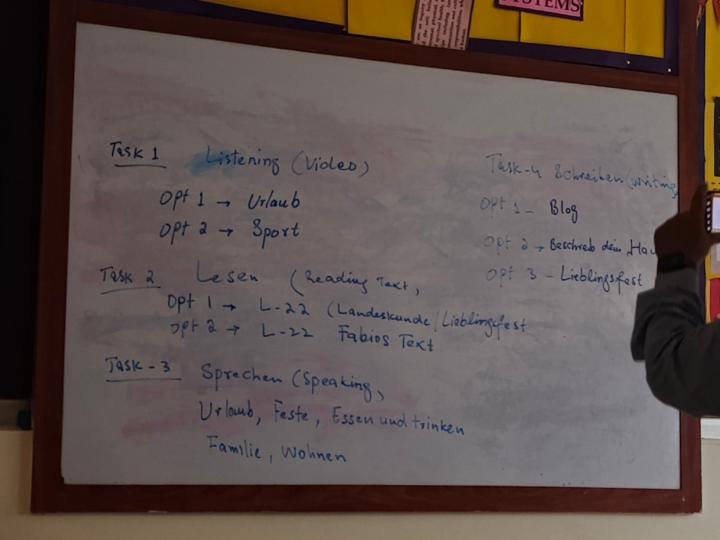 SYSTEMS
Task 1 Listening (Video)
Opt 1 → Urlaub
Opt 2 → Sport
Task 2 Lesen (Reading Text,
Opt 1 → L-22 (Landeskunde / Lieblingsfest
Opt 2 → L-22 Fabios Text
Task - 3 Sprechen (Speaking,
Urlaub, Feste, Essen und trinken
Familie, Wohnen
Task-4 Schreiben (writing,
Opt 1 - Blog
Opt 2 → Beschreib dein
Opt 3 - Lieblingsfest